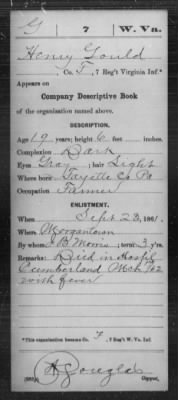 G 7 W. Va.
Henry Gould
, Co. F, 7 Reg't Virginia Inf.*
Appears on
Company Descriptive Book
of the organization named above.
DESCRIPTION.
Age 19 years; height 6 feet inches.
Complexion Dark
Eyes Gray; hair Light
Where born Fayette Co Pa
Occupation Farmer
ENLISTMENT.
When Sept 23, 1861.
Where Morgantown
By whom J B Morris; term 3 y'rs.
Remarks: Died in Hospl
Cumberland Mch '62
with fever
*This organization became Co. F, 7 Reg't W. Va. Inf.
Douglas
Copyist.